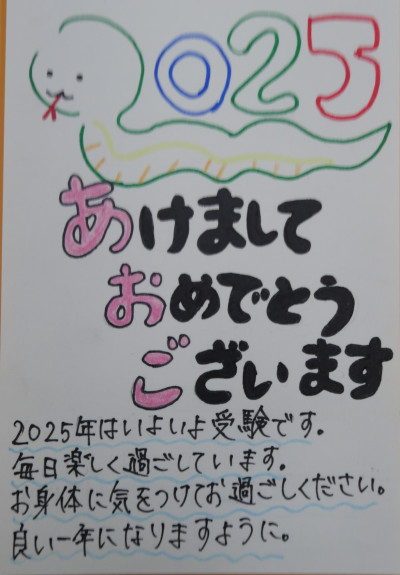 2025
あけまして
おめでとう
ございます
2025年はいよいよ受験です.
毎日楽しく過ごしています.
お身体に気をつけてお過ごしください。
良い一年になりますように。